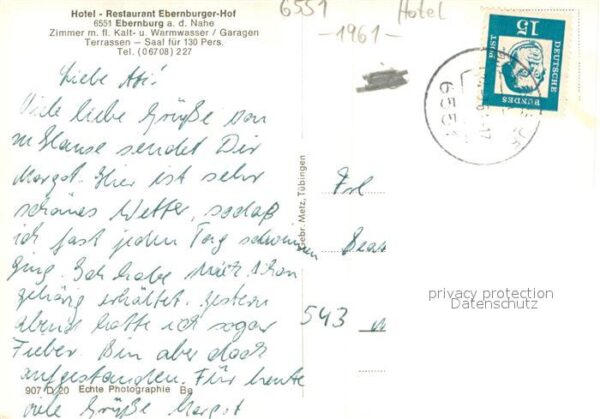 Hotel - Restaurant Ebernburger-Hof
6551 Ebernburg a. d. Nahe
Zimmer m. fl. Kalt- u. Warmwasser / Garagen
Terrassen — Saal für 130 Pers.
Tel. (06708) 227
6551 Hotel
-1961-
15
DEUTSCHE
BUNDES
POST
6551
Liebe
Viele liebe Grüße von
zu Hause sendet Dir
Margot. Hier ist sehr
schönes Wetter, sodaß
ich fast jeden Tag schwimmen
ging. Ich habe mich schon
gehörig erkältet. Gestern
abend hatte ich sogar
Fieber. Bin aber doch
aufgestanden. Für heute
viele Grüße Margot
Gebr. Metz, Tübingen
Frl
Beat
543
privacy protection
Datenschutz
907 D 20 Echte Photographie Be